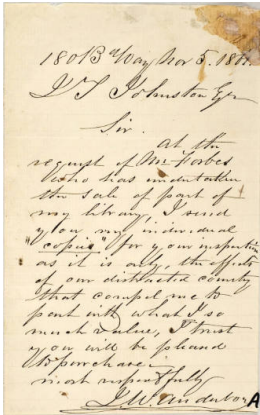 180 B Way Nov 5. 186
J T Johnston Esqr
Sir.
At the
request of Mr Forbes
who has undertaken
the sale of part of
my library, I send
you my individual
"copies" for your inspection
as it is only, the effects
of our distracted country
that compel me to
part with what I so
much value, I trust
you will be pleased
to purchase.
most respectfully
J. W.
A